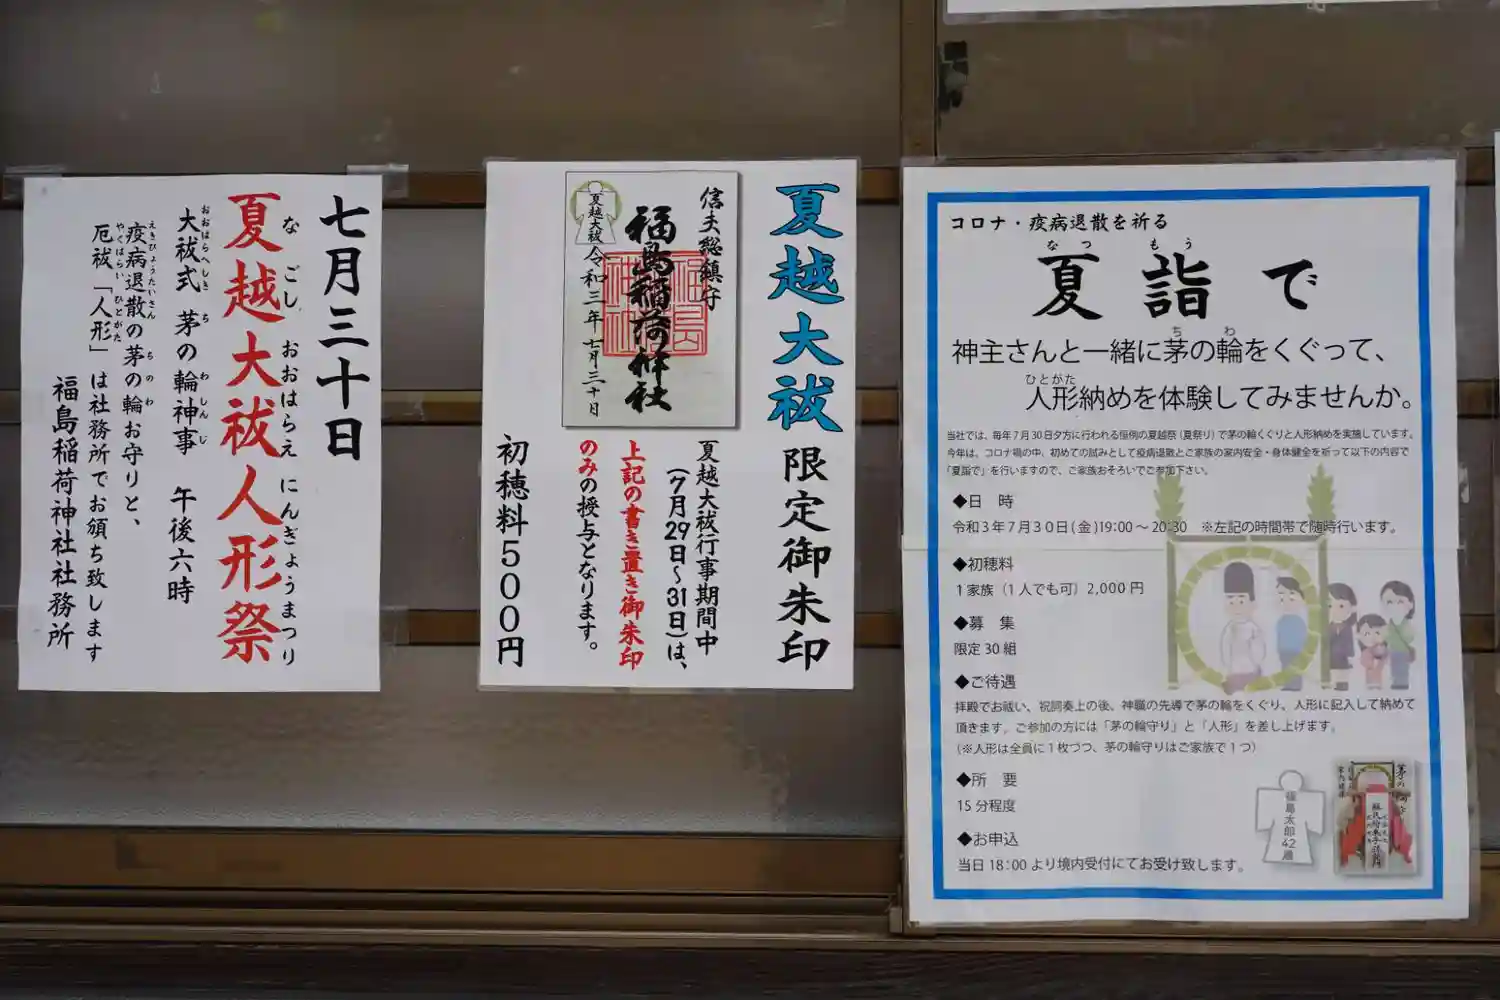 七月三十日
なごし おおはらえ にんぎょうまつり
夏越大祓人形祭
おおはらへしき ち わ しんじ
大祓式 茅の輪神事 午後六時
えきびょうたいさん ち の わ
疫病退散の茅の輪お守りと、
やくばらい ひとがた
厄祓「人形」は社務所でお頒ち致します
福島稲荷神社社務所
夏越大祓 限定御朱印
信夫総鎮守
福島稲荷神社
夏越大祓
令和三年七月三十日
夏越大祓行事期間中
(7月29日〜31日)は、
上記の書き置き御朱印
のみの授与となります。
初穂料500円
コロナ・疫病退散を祈る
なつ もう
夏 詣 で
ち わ
神主さんと一緒に茅の輪をくぐって、
ひとがた
人形納めを体験してみませんか。
当社では、毎年7月30日夕方に行われる恒例の夏越祭(夏祭り)で茅の輪くぐりと人形納めを実施しています。
今年は、コロナ禍の中、初めての試みとして疫病退散とご家族の家内安全・身体健全を祈って以下の内容で
「夏詣で」を行いますので、ご家族おそろいでご参加下さい。
◆日 時
令和3年7月30日(金)19:00〜20:30 ※左記の時間帯で随時行います。
◆初穂料
1家族(1人でも可)2,000円
◆募 集
限定30組
◆ご待遇
拝殿でお祓い、祝詞奏上の後、神職の先導で茅の輪をくぐり、人形に記入して納めて
頂きます。ご参加の方には「茅の輪守り」と「人形」を差し上げます。
(※人形は全員に1枚づつ、茅の輪守りはご家族で1つ)
◆所 要
15分程度
◆お申込
当日18:00より境内受付にてお受け致します。
福島太郎42歳